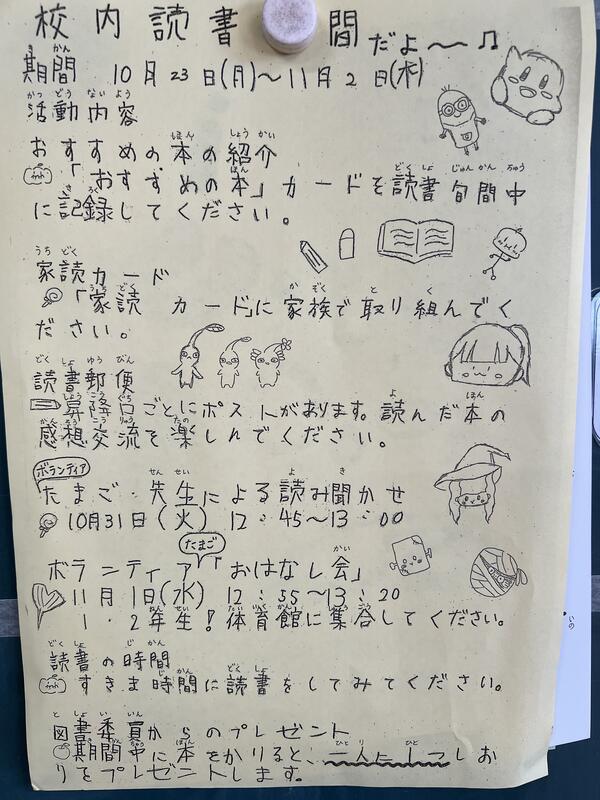 校内読書 間だよ〜♫
期間 10月23日(月)〜11月2日(木)
活動内容
おすすめの本の紹介
「おすすめの本」カードを読書旬間中
に記録してください。
家読カード
「家読 カード」に家族で取り組んでく
ださい。
読書郵便
昇降口ごとにポストがあります。読んだ本の
感想交流を楽しんでください。
ボランティア
たまご・先生による読み聞かせ
10月31日(火) 12:45〜13:00
たまご
ボランティア「おはなし会」
11月1日(水) 12:55〜13:20
1・2年生!体育館に集合してください。
読書の時間
すきま時間に読書をしてみてください。
図書委員からのプレゼント
期間中に本をかりると、一人に一つしお
りをプレゼントします。